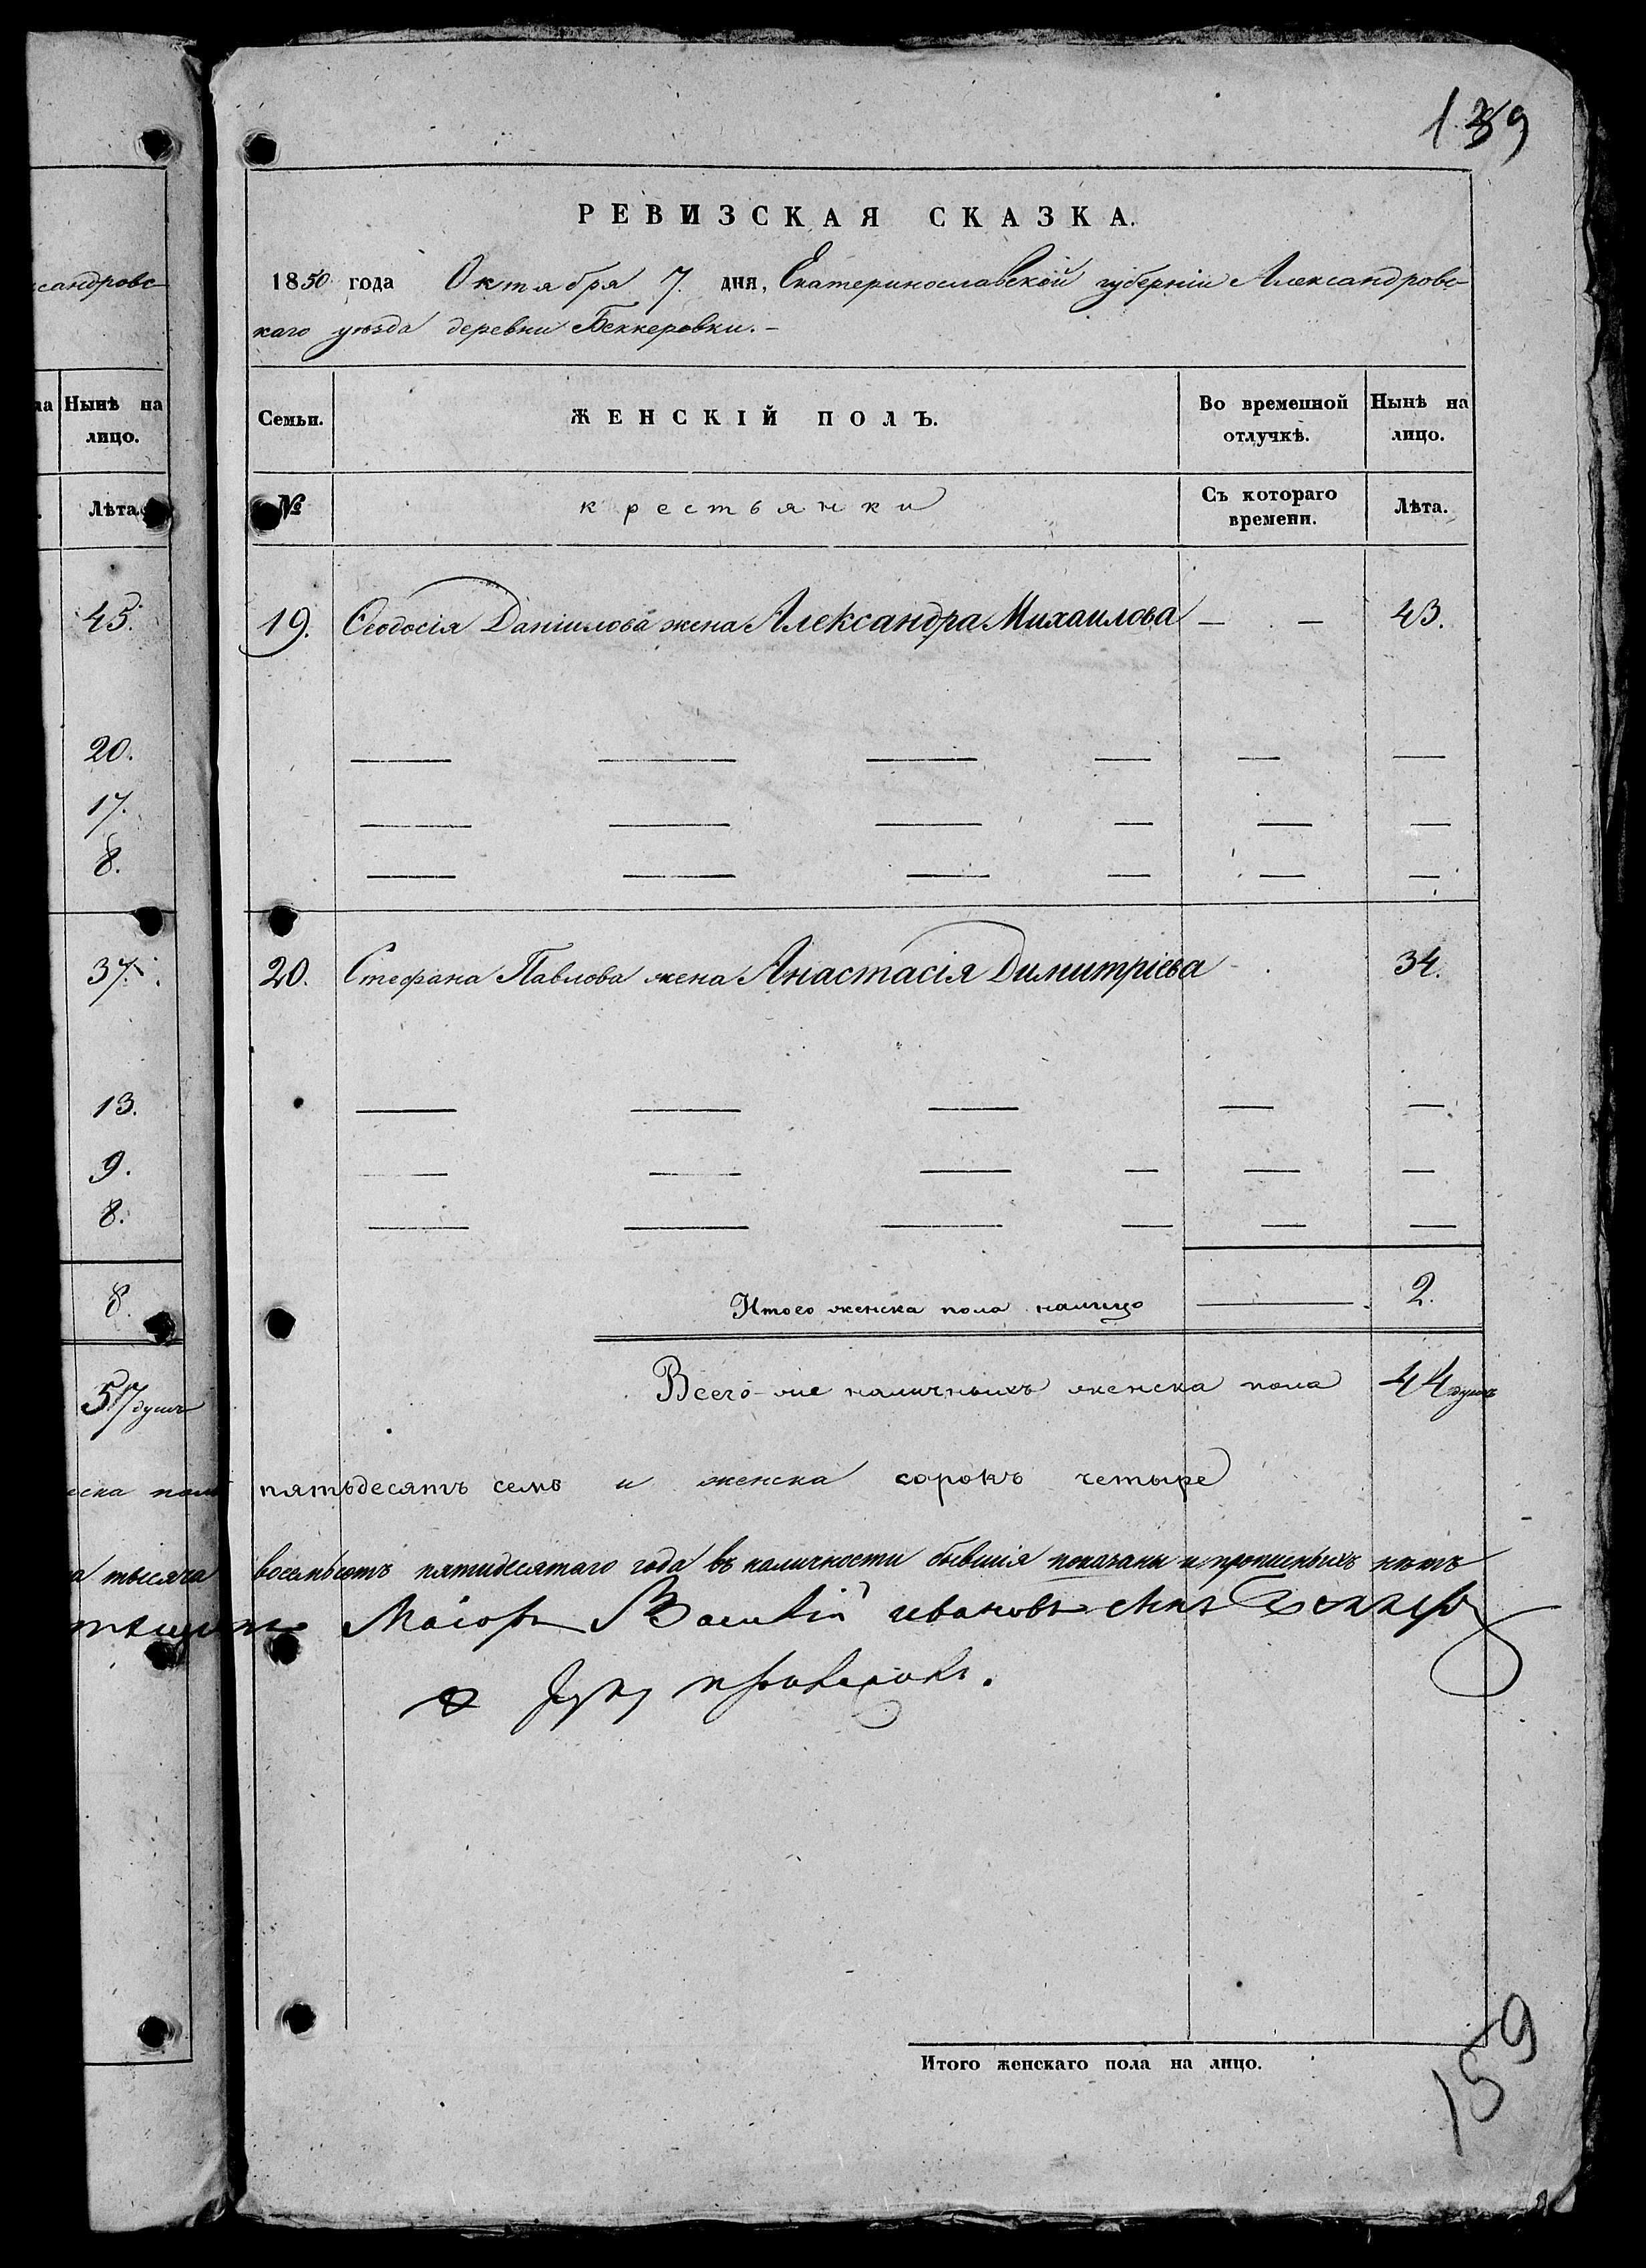 139
РЕВИЗСКАЯ СКАЗКА.
1850 года Октября 7. дня, Екатеринославской губерніи Александровс-
каго уѣзда деревни Беккеровки. –
Семьи.
ЖЕНСКІЙ ПОЛЪ.
Во временной отлучкѣ.
Нынѣ на лицо.
№
крестьянки
Съ котораго времени.
Лѣта.
19. Ѳеодосія Даніилова жена Александра Михаилова — — 43.
20. Стефана Павлова жена Анастасія Димитріева 34.
Итого женска пола налицо 2.
Всего-же наличныхъ женска пола 44 душъ
пятьдесятъ семь и женска сорокъ четыре
восемьсотъ пятидесятаго года въ наличности бывшія показаны и прописныхъ нѣтъ
Маіоръ Василій Ивановъ сынъ Беккеръ
руку приложилъ.
Итого женскаго пола на лицо.
159
сандровс-
ла
Нынѣ на
лицо.
Лѣта.
45.
20.
17.
8.
37.
13.
9.
8.
8.
57 душъ
а тысяча